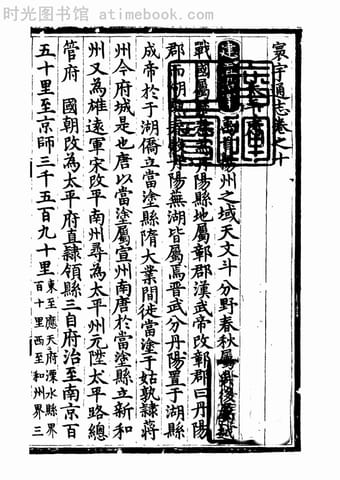 时光图书馆 www.atimebook.com
寰宇通志卷之十
太平府
建 禹貢揚州之域天文斗分野春秋屬吳後屬越
戰國屬楚秦為丹陽縣地屬鄣郡漢武帝改鄣郡曰丹陽
郡而蕪湖皆屬焉晉武分丹陽置于湖縣
成帝于于湖僑立當塗縣隋大業間徙當塗于姑孰隷蔣
州今府城是也唐以當塗屬宣州南唐於當塗縣立新和
州又為雄遠軍宋改平南州尋為太平州元陞太平路總
管府 國朝改為太平府直隷領縣三自府治至南京百
五十里至京師三千五百九十里東至應天府溧水縣界
百十里西至和州界三